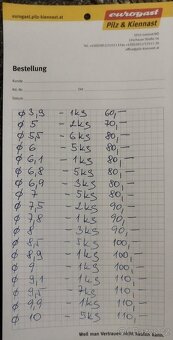 eurogast.pilz-kiennast.at
eurogast
Pilz & Kiennast
Bestellung
Kunde
Kd.-Nr.
Ort
Datum
Ø 3,9 - 1kg 60,-
Ø 5 - 2kg 70,-
Ø 5,5 - 6kg 80,-
Ø 6 - 5kg 80,-
Ø 6,1 - 1kg 80,-
Ø 6,8 - 5kg 80,-
Ø 6,9 - 3kg 80,-
Ø 7 - 5kg 80,-
Ø 7,5 - 2kg 90,-
Ø 7,8 - 1kg 90,-
Ø 8 - 3kg 90,-
Ø 8,5 - 5kg 100,-
Ø 8,9 - 1kg 100,-
Ø 9 - 1kg 100,-
Ø 9,1 - 1kg 110,-
Ø 9,5 - 7kg 110,-
Ø 9,9 - 1kg 110,-
Ø 10 - 5kg 110,-
Weil man Vertrauen nicht kaufen kann.